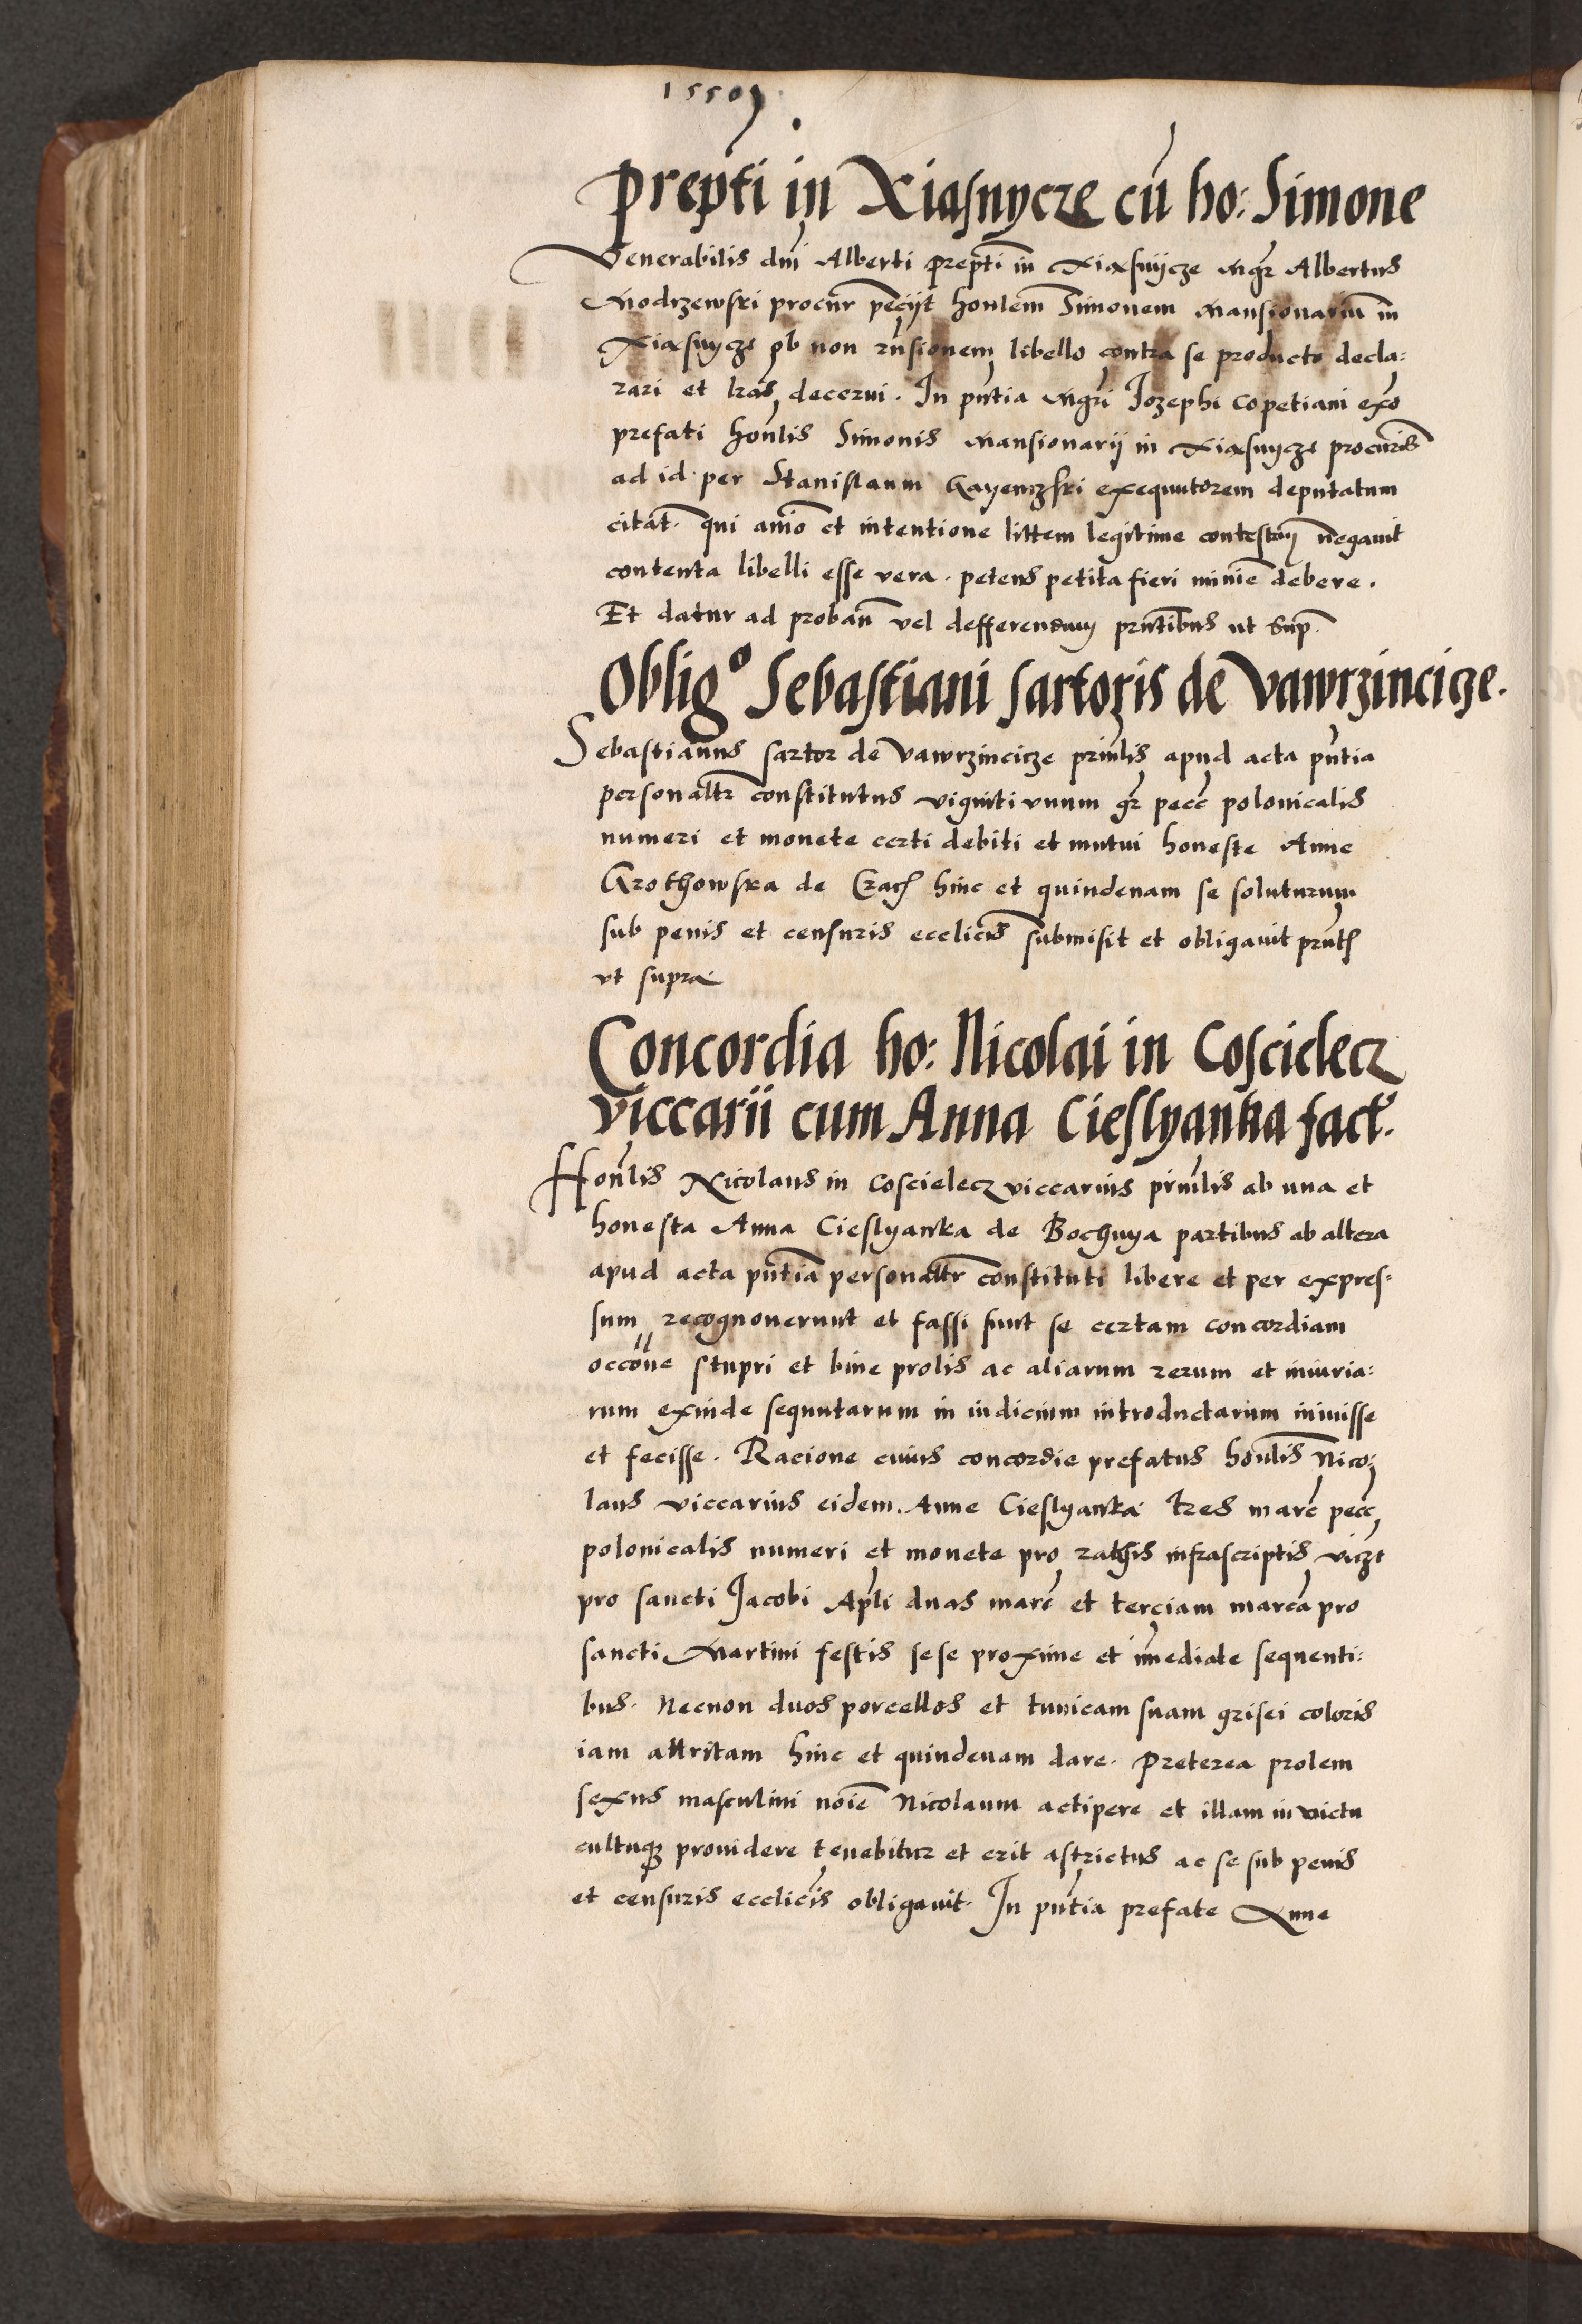 1550
Prepti in Xiasnycze cū ho: Simone
Venerabilis dnī Alberti prepti in Xiasnijcze Mgr Albertus
Modrzewski procur peciit honlem Simonem Mansionarium in
Xiasnycze ob non rnsionem libello contra se producto decla:
rari et lras decerni. In pntia Mgri Jozephi Copetiani exo
prefati honlis Simonis Mansionarij in Xiasnycze procuris
ad id per Stanislaum Gayenczski exequutorem deputatum
citat. qui animo et intentione littem legitime contestan negauit
contenta libelli esse vera. petens petita fieri minime debere.
Et datur ad proban vel defferendum prntibus ut sup.
Obligo Sebastiani sartoris de Vawrzincicze.
Sebastianus sartor de Vawrzincicze prinlis apud acta pntia
personaltr constitutus viginti vnum gr pecc polonicalis
numeri et monete certi debiti et mutui honeste Anne
Grothowska de Crac hinc et quindenam se soluturum
sub penis et censuris ecclicis submisit et obligauit prnt
vt supra
Concordia ho: Nicolai in Coscielecz
viccarii cum Anna Cieslyanka fact.
Honlis Nicolaus in Coscielecz viccarius prinlis ab una et
honesta Anna Cieslyanka de Bochnya partibus ab altera
apud acta pntia personaltr constituti libere et per expres:
sum recognouerunt et fassi sunt se certam concordiam
occōne stupri et bine prolis ac aliarum rerum et iniuria:
rum exinde sequutarum in iudicium introductarum iniuisse
et fecisse. Racione cuius concordie prefatus honlis Nico:
laus viccarius eidem Anne Cieslyanka tres marc pecc
polonicalis numeri et monete pro rathis infrascriptis viczt
pro sancti Jacobi Apli duas marc et terciam marcā pro
sancti Martini festis sese proxime et imediate sequenti:
bus. Necnon duos porcellos et tunicam suam grisei coloris
iam attritam hinc et quindenam dare. Preterea prolem
sexus masculini noie Nicolaum actipere et illam in victu
cultuq3 prouidere tenebitur et erit astrictus ac se sub penis
et censuris ecclicis obligauit. In pntia prefate Anne